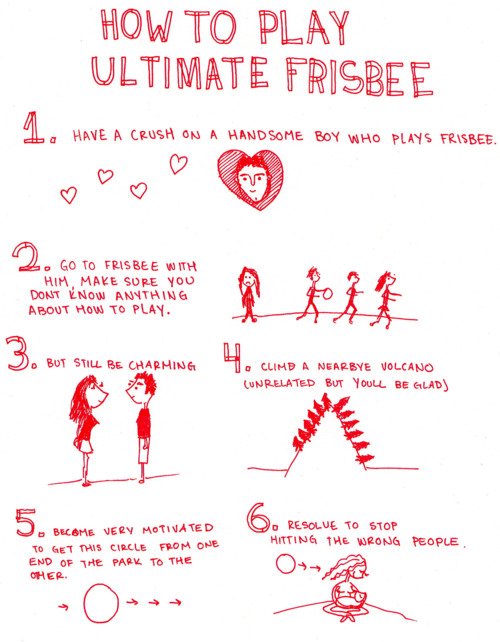 HOW TO PLAY
ULTIMATE FRISBEE
1. HAVE A CRUSH ON A HANDSOME BOY WHO PLAYS FRISBEE.
2. GO TO FRISBEE WITH
HIM, MAKE SURE YOU
DONT KNOW ANYTHING
ABOUT HOW TO PLAY.
3. BUT STILL BE CHARMING
4. CLIMB A NEARBYE VOLCANO
(UNRELATED BUT YOULL BE GLAD)
5. BECOME VERY MOTIVATED
TO GET THIS CIRCLE FROM ONE
END OF THE PARK TO THE
OTHER.
6. RESOLVE TO STOP
HITTING THE WRONG PEOPLE.